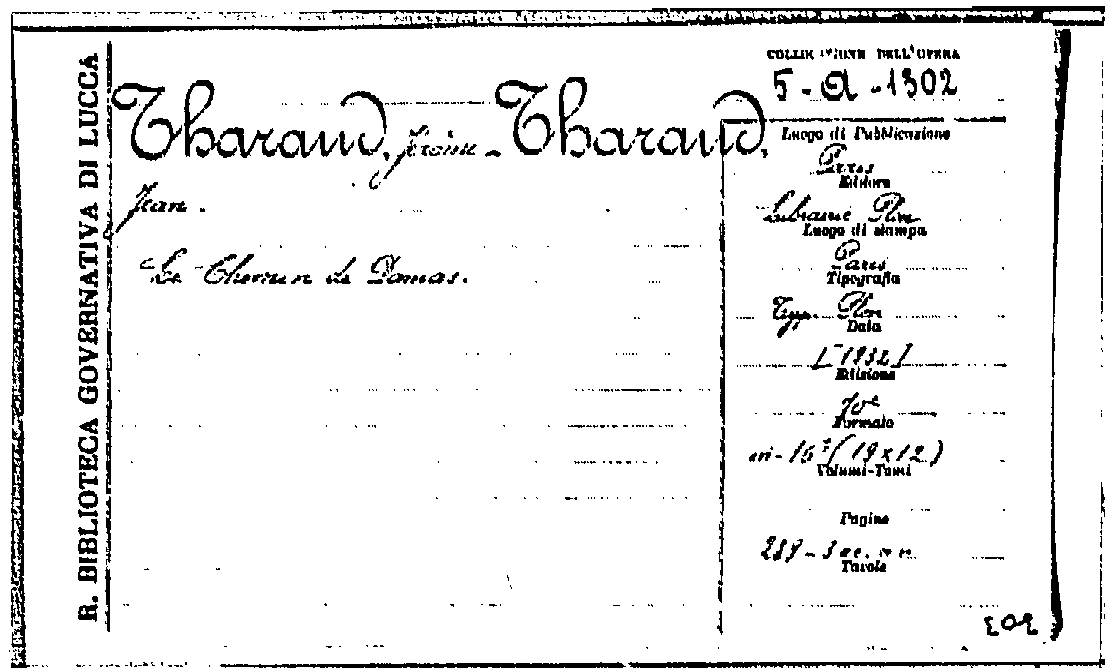 R. BIBLIOTECA GOVERNATIVA DI LUCCA
COLLOCAZIONE DELL'OPERA
5-A-1302
Tharaud, Jérôme - Tharaud,
Jean.
Le Chemin de Damas.
Luogo di Pubblicazione
Paris
Editore
Librairie Plon
Luogo di stampa
Paris
Tipografia
Typ. Plon
Data
[1932]
Edizione
Formato
in-16° (19x12)
Volumi-Tomi
Pagine
289-3 n. n.
Tavole